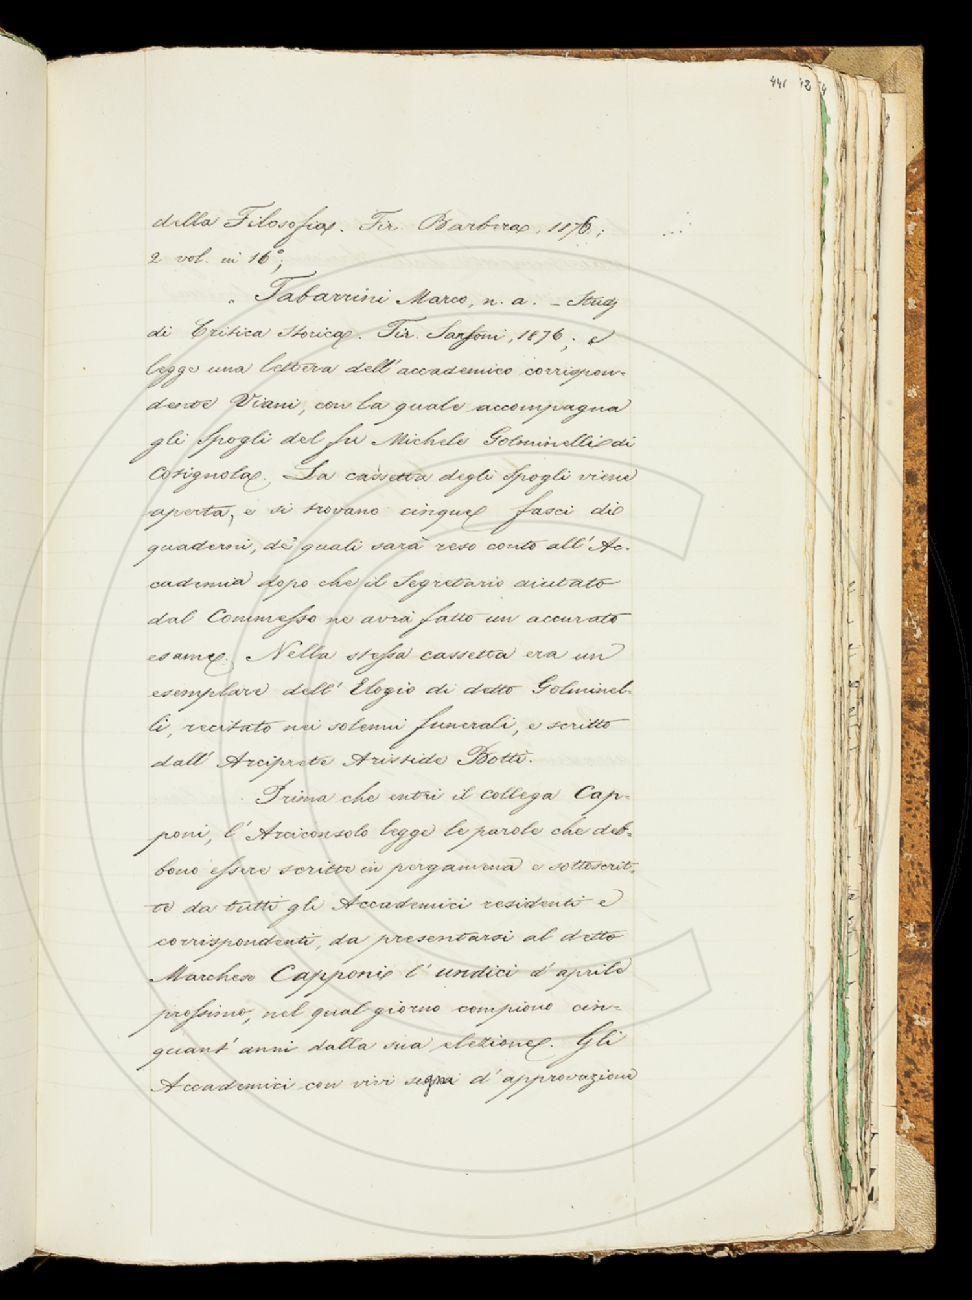 441 12
della Filosofia. Fir. Barbera, 1876;
2 vol. in 16°;
„ Tabarrini Marco, n. a. – Studj
di Critica storica. Fir. Sansoni, 1876; e
legge una lettera dell' accademico corrispon-
dente Viani, con la quale accompagna
gli spogli del fu Michele Golminelli di
Cotignola. La cassetta degli spogli viene
aperta, e si trovano cinque fasci di
quaderni, de' quali sarà reso conto all' Ac-
cademia dopo che il Segretario aiutato
dal Commesso ne avrà fatto un accurato
esame. Nella stessa cassetta era un
esemplare dell' Elogio di detto Golminel-
li, recitato nei solenni funerali, e scritto
dall' Arciprete Aristide Botti.
Prima che entri il collega Cap-
poni, l' Arciconsolo legge le parole che deb-
bono essere scritte in pergamena e sottoscrit-
te da tutti gli Accademici residenti e
corrispondenti, da presentarsi al detto
Marchese Capponi l' undici d' aprile
prossimo, nel qual giorno compiono cin-
quant' anni dalla sua elezione. Gli
Accademici con vivi segni d' approvazione